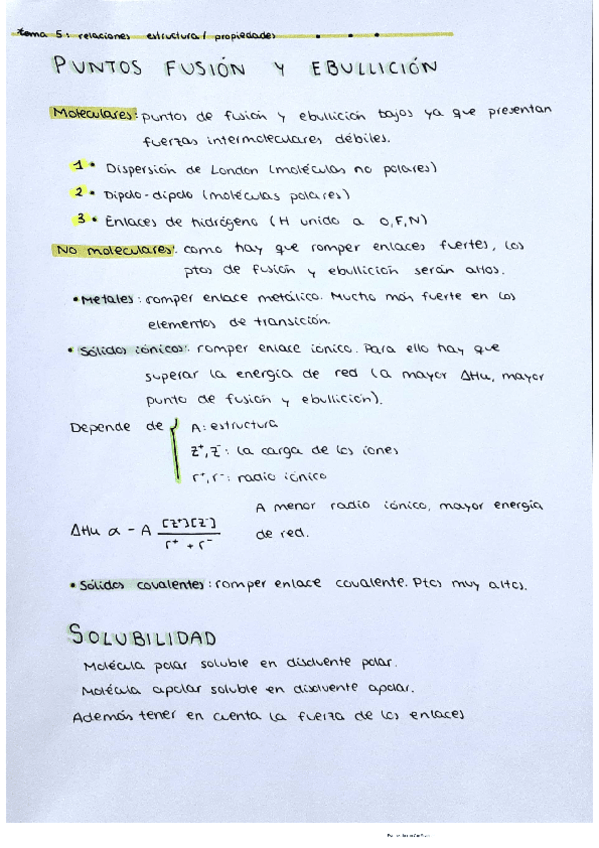 tema 5: relaciones estructura / propiedades
PUNTOS FUSIÓN Y EBULLICIÓN
Moleculares: puntos de fusión y ebullición bajos ya que presentan
fuerzas intermoleculares débiles.
1 • Dispersión de London (moléculas no polares)
2 • Dipolo-dipolo (moléculas polares)
3 • Enlaces de hidrógeno (H unido a O,F,N)
No moleculares: como hay que romper enlaces fuertes, los
ptos de fusión y ebullición serán altos.
• Metales: romper enlace metálico. Mucho más fuerte en los
elementos de transición.
• Sólidos iónicos: romper enlace iónico. Para ello hay que
superar la energía de red (a mayor ΔHu, mayor
punto de fusión y ebullición).
Depende de { A: estructura
z⁺, z⁻: la carga de los iones
r⁺, r⁻: radio iónico
A menor radio iónico, mayor energía
de red.
ΔHu α - A [z⁺][z⁻] / r⁺ + r⁻
• Sólidos covalentes: romper enlace covalente. Ptos muy altos.
SOLUBILIDAD
Molécula polar soluble en disolvente polar.
Molécula apolar soluble en disolvente apolar.
Además tener en cuenta la fuerza de los enlaces